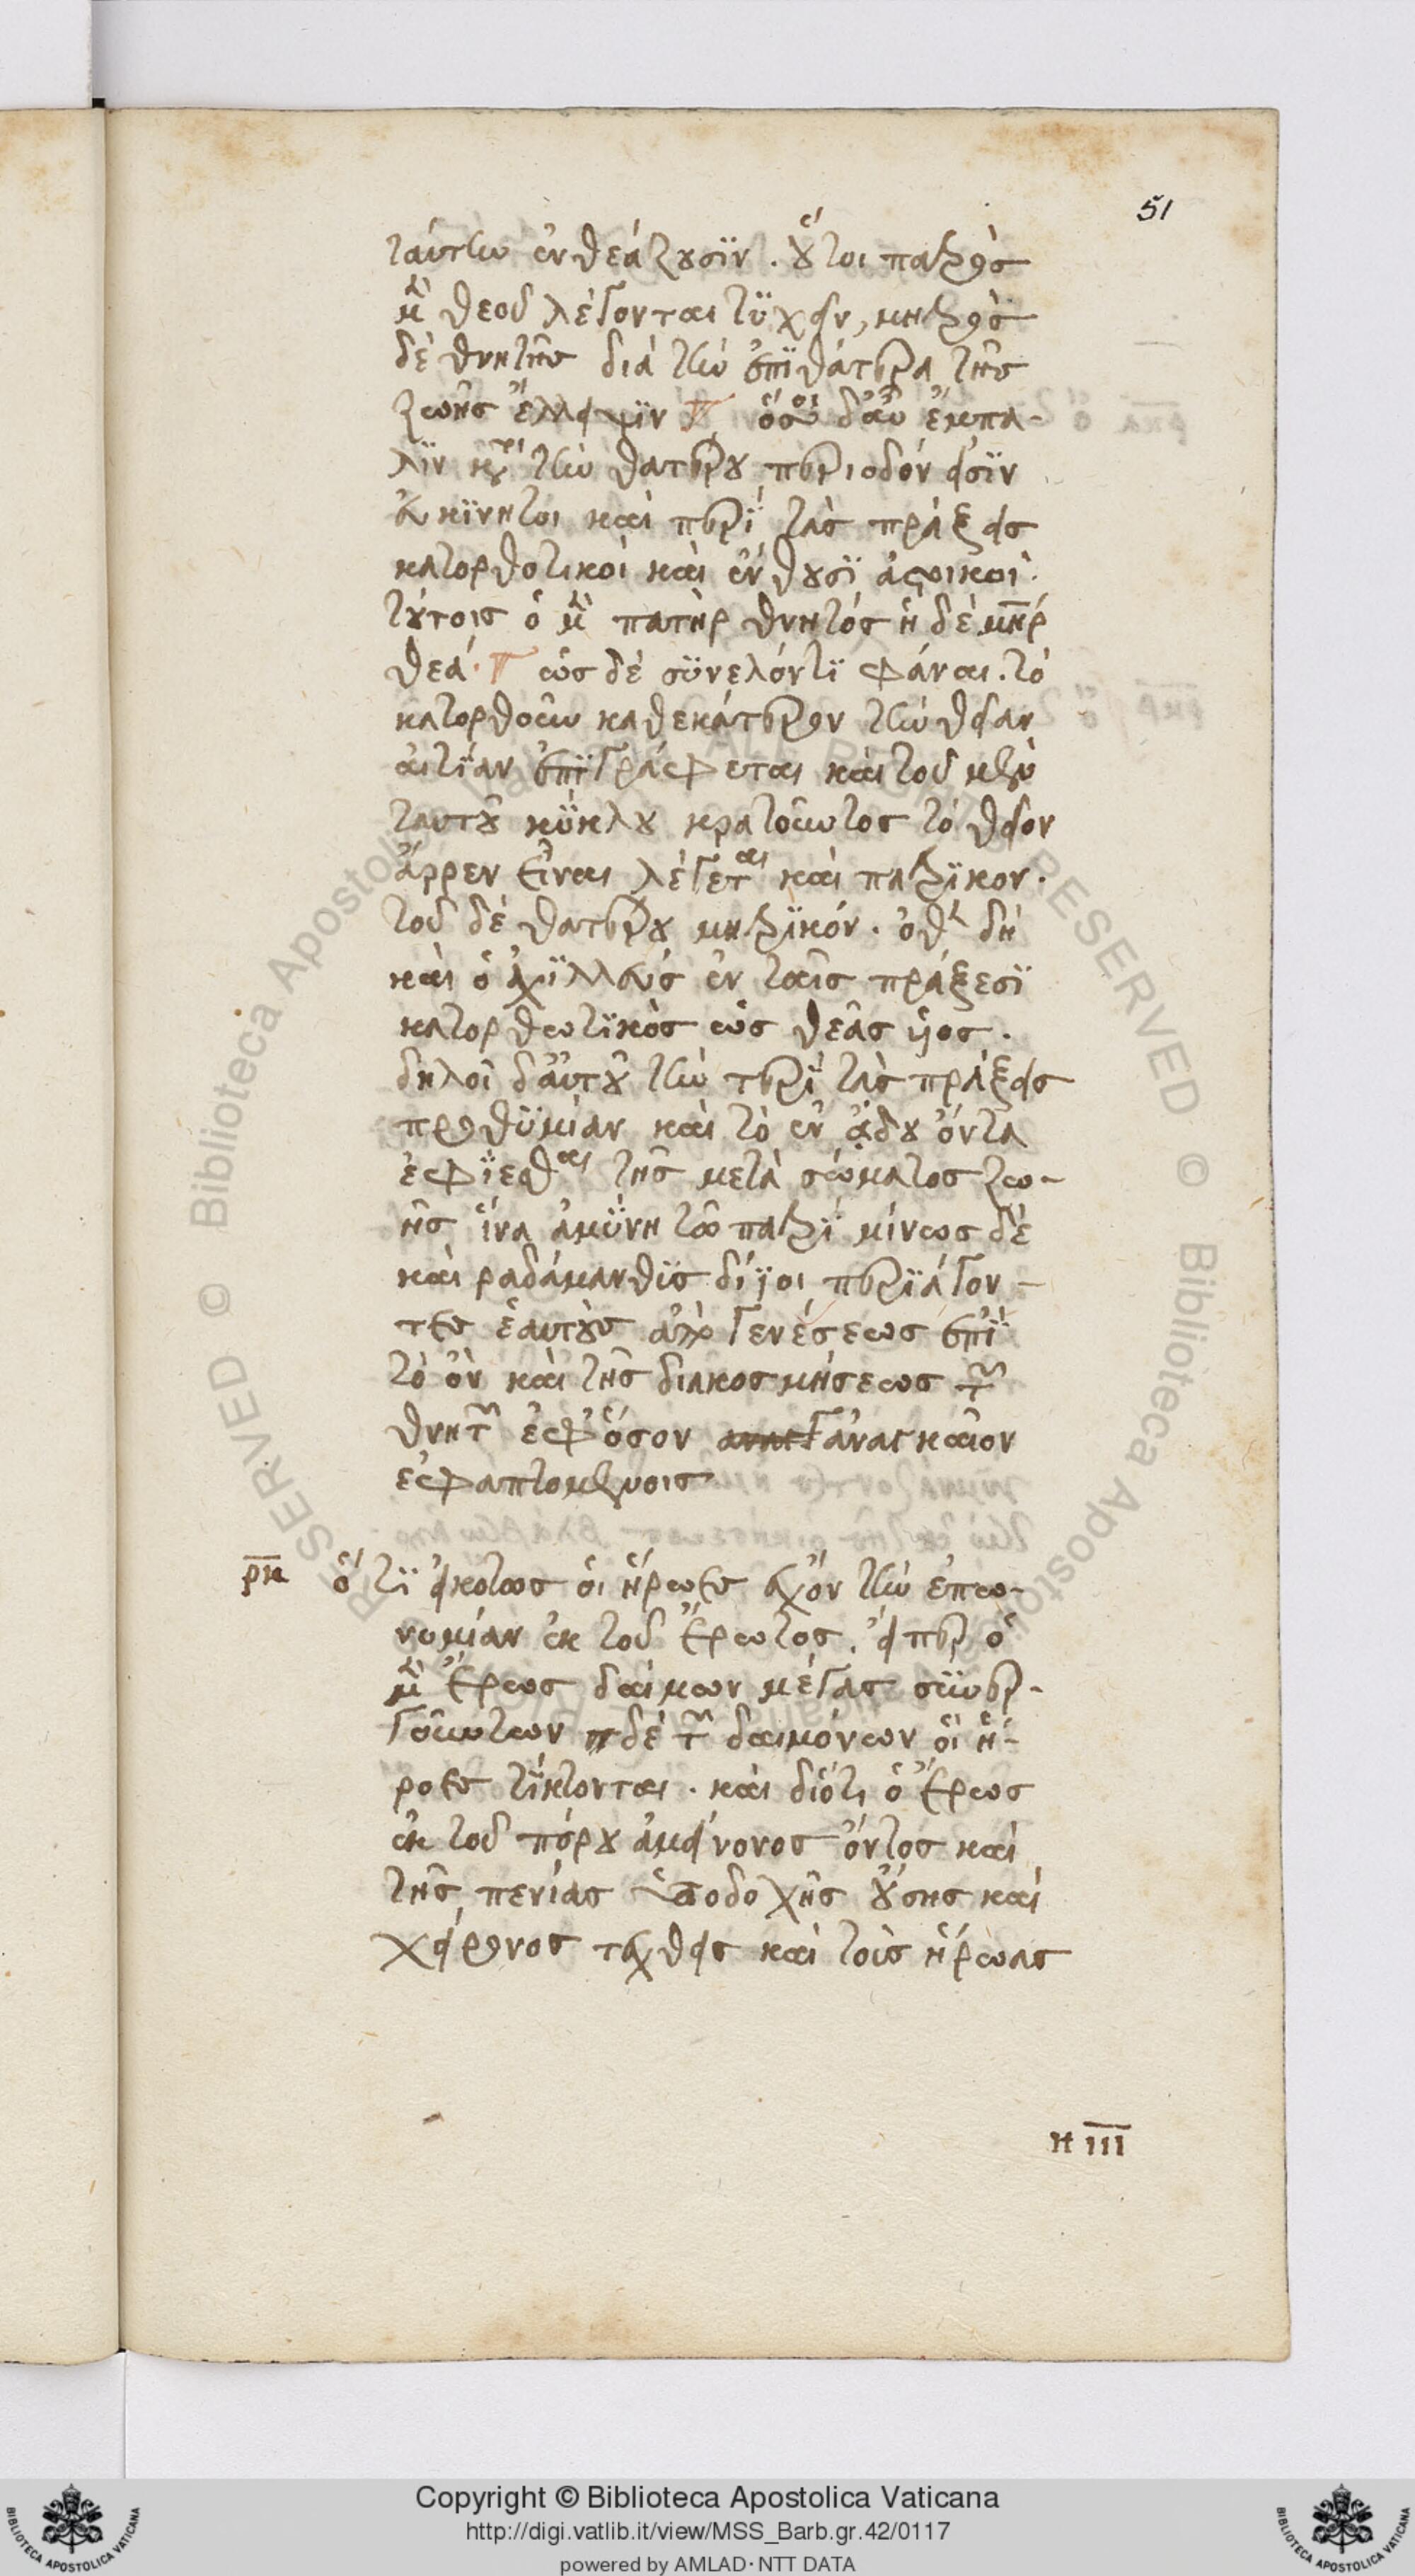 51
ταύτην ἐνθεάζουσϊν. οὗτοι πατρὸς
μὲν θεοῦ λέγονται τϋχεῖν, μητρὸς
δὲ θνητῆς διὰ τὴν ἐπϊθάτερα τῆς
ζωῆς ἔλλειψϊν ὅσοι δ' αὖ ἔμπα-
λϊν κατὰ τὴν θατέρου περιοδόν εἰσϊν
ἀκϊνητοι καὶ περϊ τὰς πράξεις
κατορθοτικοὶ καὶ ἐνθουσϊαστικοὶ.
τούτοις ὁ μὲν πατὴρ θνητός ἡ δὲ μηρ
θεά. ὡς δὲ σϋνελόντϊ φάναι. τὸ
κατορθοῦν καθεκάτερον τὴν θείαν
αἰτϊαν ἐπϊγράφεται καὶ τοῦ μὲν
ταυτοῦ κϋκλου κρατοῦντος τὸ θεῖον
ἄρρεν εἶναι λέγεται καὶ πατρϊκον.
τοῦ δὲ θατέρου μητρϊκόν. ὅθεν δὴ
καὶ ὁ ἀχϊλλεὺς ἐν ταῖς πράξεσϊ
κατορθωτϊκὸς ὡς θεᾶς ὑος.
δηλοῖ δ' αὐτοῦ τὴν περϊ τὰς πράξεις
προθϋμίαν καὶ τὸ ἐν ᾅδου ὄντα
ἐφϊεσθαι τῆς μετὰ σώματος ζω-
ῆς ἵνα ἀμϋνη τῶ πατρϊ μίνως δὲ
καὶ ραδάμανθϊς δίϊοι περϊάγον-
τες ἑαυτοὺς ἀπὸ γενέσεως ἐπϊ
τὸ ὂν καὶ τῆς διακοσμήσεως τῶν
θνητῶν ἐφ' ὅσον ἀναγκαῖον
ἐφαπτομένοις
ρκ ὅτϊ εἰκοτως οἱ ἥρωες ἔσχον τὴν ἐπω-
νυμίαν ἐκ τοῦ Ἔρωτος. εἴπερ ὁ
μὲν Ἔρως δαίμων μέγας σϋνερ-
γούντων δὲ τῶν δαιμόνων οἱ ἥ-
ροες τϊκτονται. καὶ διότι ὁ Ἔρως
ἐκ τοῦ πόρου ἀμείνονος ὄντος καὶ
τῆς πενίας ὑποδοχῆς οὔσης καὶ
χείρονος ταχθεις καὶ τοὺς ἥρωας
Η ΙΙΙ
Copyright © Biblioteca Apostolica Vaticana
http://digi.vatlib.it/view/MSS_Barb.gr.42/0117
powered by AMLAD·NTT DATA